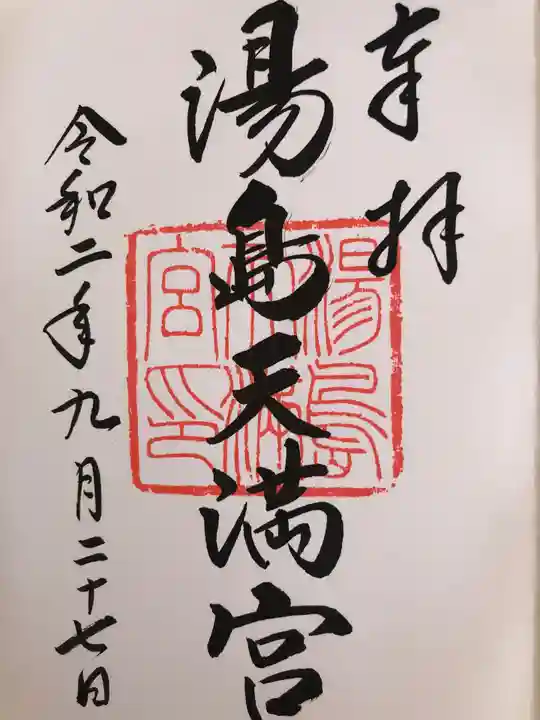 奉拝
湯島天満宮
湯島天満宮印
令和二年九月二十七日